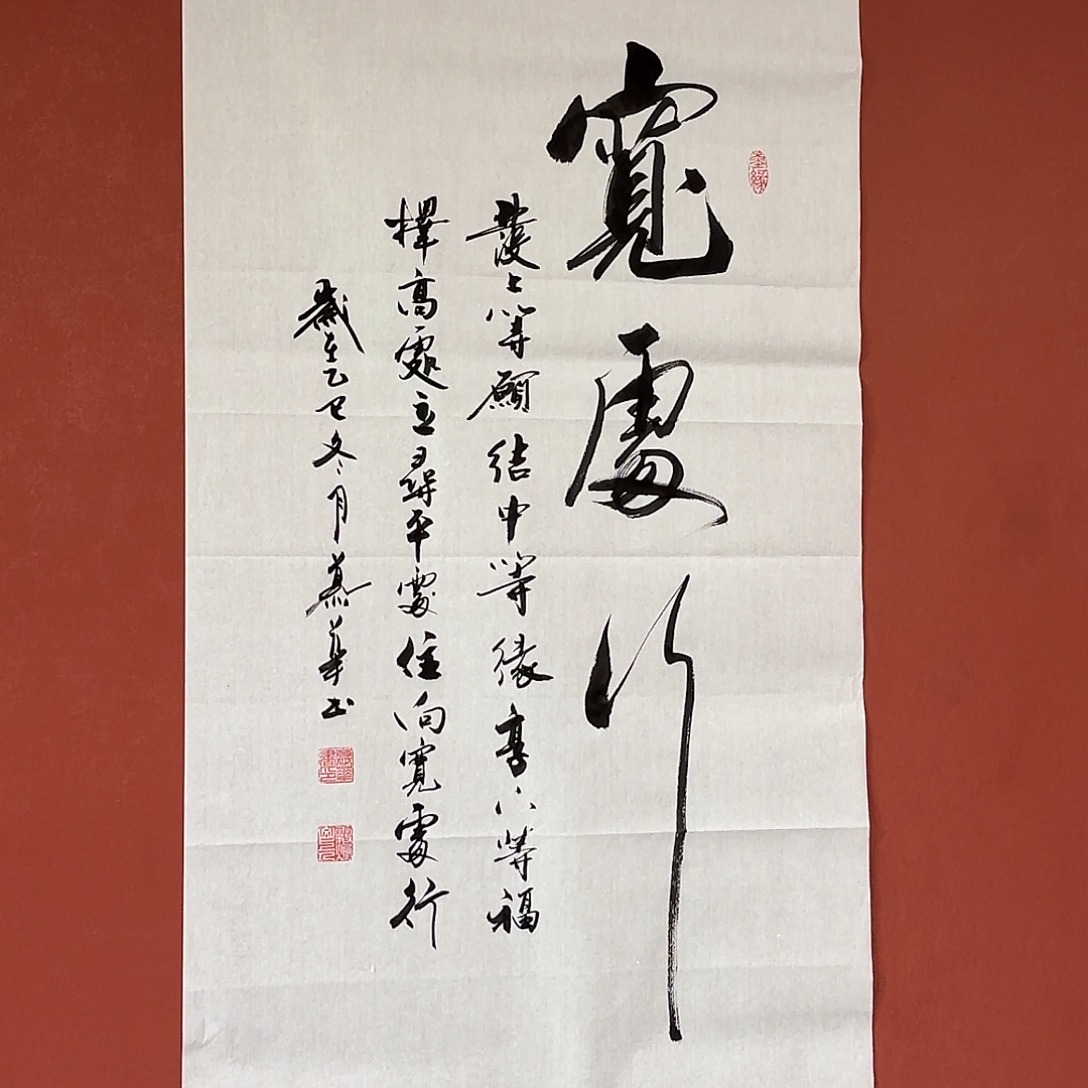 寬處行
發上等願結中等緣享下等福
擇高處立尋平處住向寬處行
歲至乙巳冬月慕華书